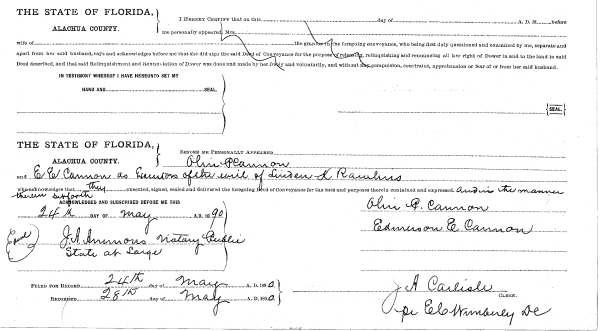 THE STATE OF FLORIDA,
ALACHUA COUNTY.
I HEREBY CERTIFY that on this day of A. D. 18 before
me personally appeared Mrs.
wife of the grantor in the foregoing conveyance, who being first duly questioned and examined by me, separate and
apart from her said husband, says and acknowledges before me that she did sign the said Deed of Conveyance for the purpose of releasing, relinquishing and renouncing all her right of Dower in and to the land in said
Deed described, and that said Relinquishment and Renunciation of Dower was done and made by her freely and voluntarily, and without any compulsion, constraint, apprehension or fear of or from her said husband.
IN TESTIMONY WHEREOF I HAVE HEREUNTO SET MY
HAND AND SEAL.
SEAL.
THE STATE OF FLORIDA,
ALACHUA COUNTY.
BEFORE ME PERSONALLY APPEARED
Olin P Cannon
and E E Cannon as of the will of Linden K Rawlins
who acknowledge that they executed, signed, sealed and delivered the foregoing Deed of Conveyance for the uses and purposes therein contained and expressed and in the manner
therein set forth
ACKNOWLEDGED AND SUBSCRIBED BEFORE ME THIS
24th DAY OF May A.D. 1890
Olin P. Cannon
J.A. Ammons Notary Public
Edmerson E. Cannon
State at Large
FILED FOR RECORD 24th day of May A. D. 1890
RECORDED 28th day of May A. D. 1890
J A Carlisle
CLERK.
pr E C Wimberley DC